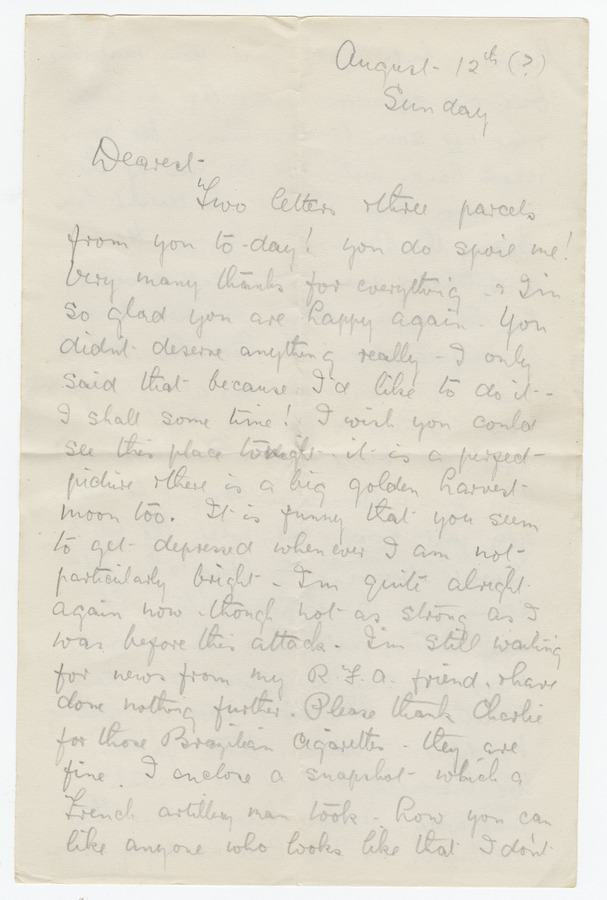 August - 12th (?)
Sunday
Dearest -
Two letters & three parcels
from you to-day! you do spoil me!
Very many thanks for everything - & I'm
so glad you are happy again. You
didn't deserve anything really - I only
said that because I'd like to do it -
I shall some time! I wish you could
see this place tonight - it is a perfect
picture & there is a big golden harvest
moon too. It is funny that you seem
to get depressed whenever I am not
particularly bright - I'm quite alright
again now - though not as strong as I
was before this attack. I'm still waiting
for news from my R.F.A. friend, & have
done nothing further. Please thank Charlie
for those Brazilian Cigarettes - they are
fine. I enclose a snapshot which a
French artillery man took - how you can
like anyone who looks like that I don't